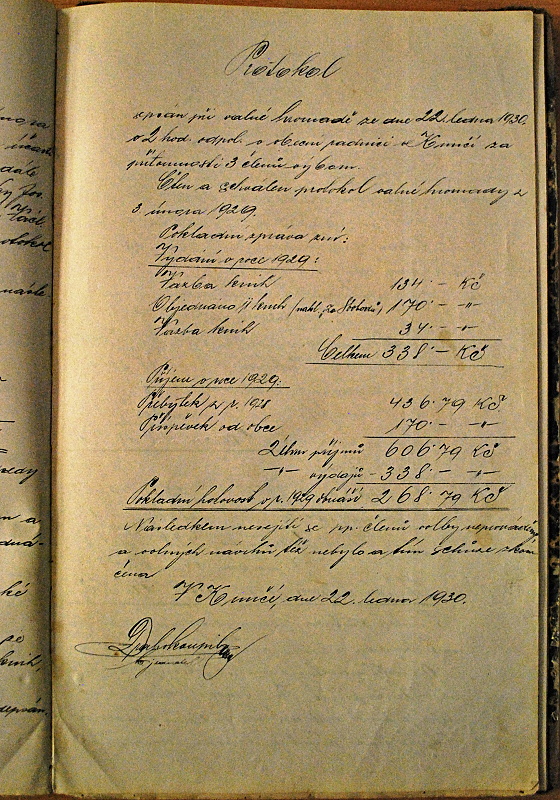 Protokol
sepsán při valné hromadě ze dne 22. ledna 1930
o 2 hod. odpol. v obecní radnici v Kunčí za
přítomnosti 3 členů výboru.
Čten a schválen protokol valné hromady z
3. února 1929.
Pokladní zpráva zní:
Vydání v roce 1929:
Vazba knih 134·— Kč
Objednáno knih 170·— -"-
Vazba knih 34·— -"-
Celkem 338·— Kč
Příjem v roce 1929.
Přebytek z r. 1928 436·79 Kč
Příspěvek od obce 170·— -"-
Úhrn příjmů 606·79 Kč
-"- výdajů - 338·— -"-
Pokladní hotovost v r. 1929 obnáší 268·79 Kč
Následkem nesejití se pp. členů volby neprováděny
a volných návrhů též nebylo a tím schůze skon
čena
V Kunčí, dne 22. ledna 1930.